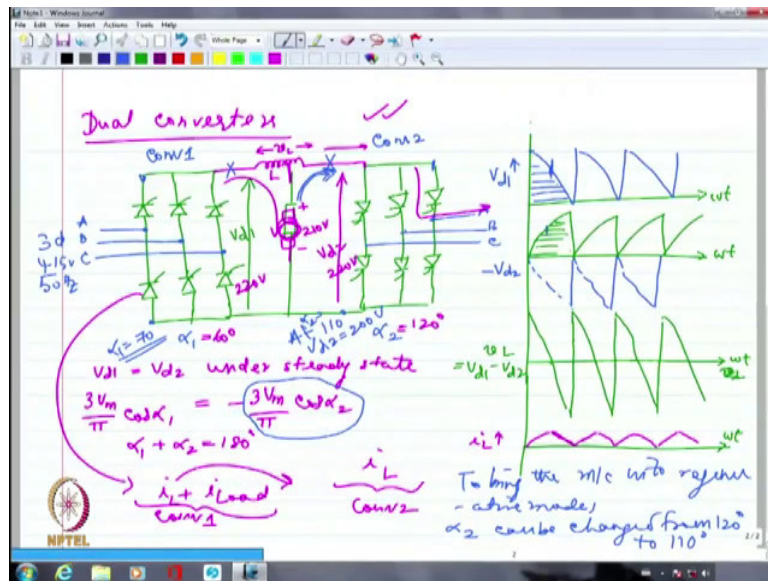 Note1 - Windows Journal
File Edit View Insert Actions Tools Help
Whole Page
B I
Dual converters
Conv1
Conv2
← v_L →
L
A
B
C
3φ
415V
50Hz
V_d1
220V
+
V
210V
-
V_d2
200V
B
C
α₁=70
α₁=60°
α₂=110°
V_d2=200V
α₂=120°
V_d1 = V_d2 under steady state
3V_m/π cos α₁ = -3V_m/π cos α₂
α₁ + α₂ = 180°
i_L + i_Load
Conv1
i_L
Conv2
V_d1 ↑
ωt
ωt
-V_d2
v_L
= V_d1 - V_d2
ωt
v_L
i_L ↑
ωt
To bring the m/c into regener
-ative mode,
α₂ can be changed from 120°
to 110°
NPTEL
2
2/2